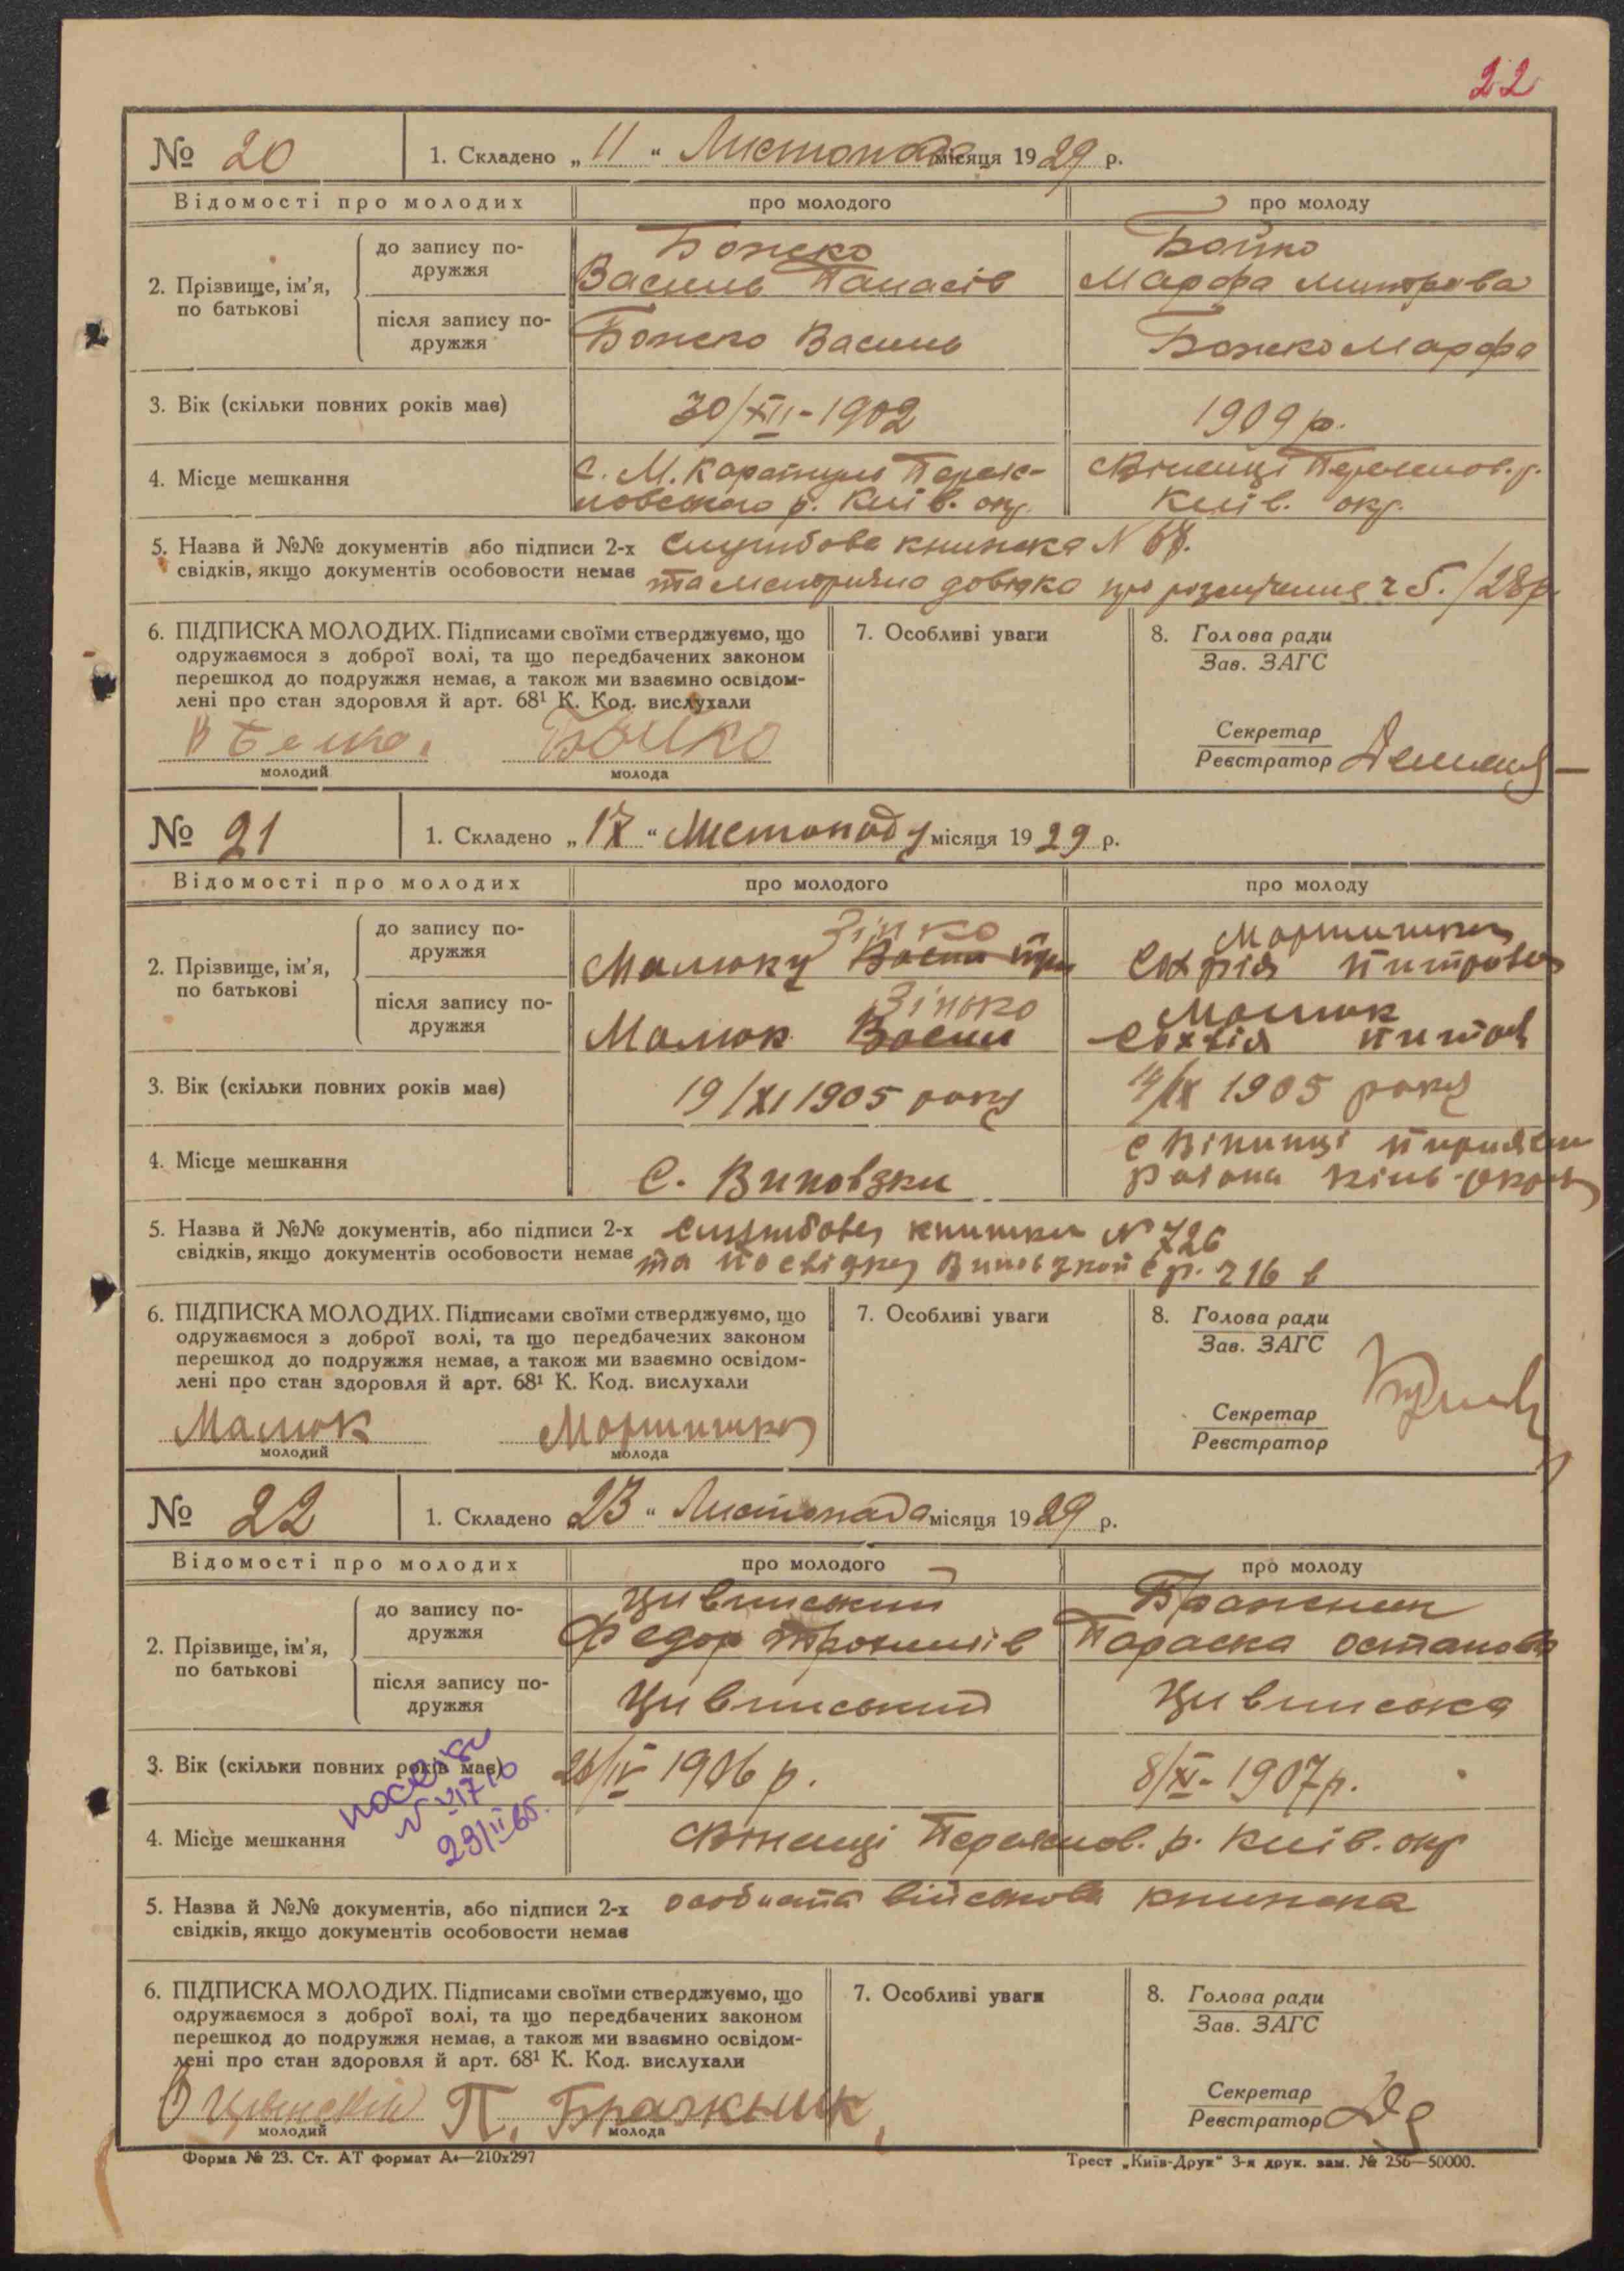 22
№ 20 1. Складено „ 11 “ Листопада місяця 1929 р.
Відомості про молодих про молодого про молоду
2. Прізвище, ім'я, по батькові
до запису подружжя
Божко
Василь Панасів
Бойко
Марфа Митрова
після запису подружжя
Божко Василь
Божко Марфа
3. Вік (скільки повних років має) 30/XII-1902 1909 р.
4. Місце мешкання
с. М. Каратуль Переяс-
ловського р. Київ. окр.
с Вінинці Переяслов. р.
Київ. окр.
5. Назва й №№ документів або підписи 2-х Службова книжка N
свідків, якщо документів особовости немає та метрична довідка про 5./28р.
6. ПІДПИСКА МОЛОДИХ. Підписами своїми стверджуємо, що
одружаємося з доброї волі, та що передбачених законом
перешкод до подружжя немає, а також ми взаємно освідом-
лені про стан здоров'я й арт. 68¹ К. Код. вислухали
Бойко
молодий молода
7. Особливі уваги
8. Голова ради
Зав. ЗАГС
Секретар
Реєстратор
№ 21 1. Складено „ “ Листопаду місяця 1929 р.
Відомості про молодих про молодого про молоду
2. Прізвище, ім'я, по батькові
до запису подружжя
Зінко
Малюку
после запису подружжя
Зінько
Малюк
Малюк
3. Вік (скільки повних років має) 19/XI 1905 року 14/IX 1905 року
4. Місце мешкання
С. Виповзки
с Вінинці
Района
5. Назва й №№ документів, або підписи 2-х Службова книжка N 726
свідків, якщо документів особовости немає та посвідка с/р. 216
6. ПІДПИСКА МОЛОДИХ. Підписами своїми стверджуємо, що
одружаємося з доброї волі, та що передбачених законом
перешкод до подружжя немає, а також ми взаємно освідом-
лені про стан здоровля й арт. 68¹ К. Код. вислухали
Малюк
молодий молода
7. Особливі уваги
8. Голова ради
Зав. ЗАГС
Секретар
Реєстратор
№ 22 1. Складено 23 “ Листопада місяця 1929 р.
Відомості про молодих про молодого про молоду
2. Прізвище, ім'я, по батькові
до запису подружжя
Цивинський
Федор Трохимів
Бражник
Параска Остапова
після запису подружжя
Цивинський
Цивинська
3. Вік (скільки повних років має) 26/IV 1906 р. 8/XI-1907р.
23/II 65.
4. Місце мешкання с Вінинці Переяслов. р. Київ. окр
5. Назва й №№ документів, або підписи 2-х особиста військова книжка
свідків, якщо документів особовости немає
6. ПІДПИСКА МОЛОДИХ. Підписами своїми стверджуємо, що
одружаємося з доброї волі, та що передбачених законом
перешкод до подружжя немає, а також ми взаємно освідом-
лені про стан здоровля й арт. 68¹ К. Код. вислухали
П. Бражник
молодий молода
7. Особливі уваги
8. Голова ради
Зав. ЗАГС
Секретар
Реєстратор
Форма № 23. Ст. АТ формат А₄—210x297
Трест „Київ-Друк“ 3-я друк. зам. № 256—50000.